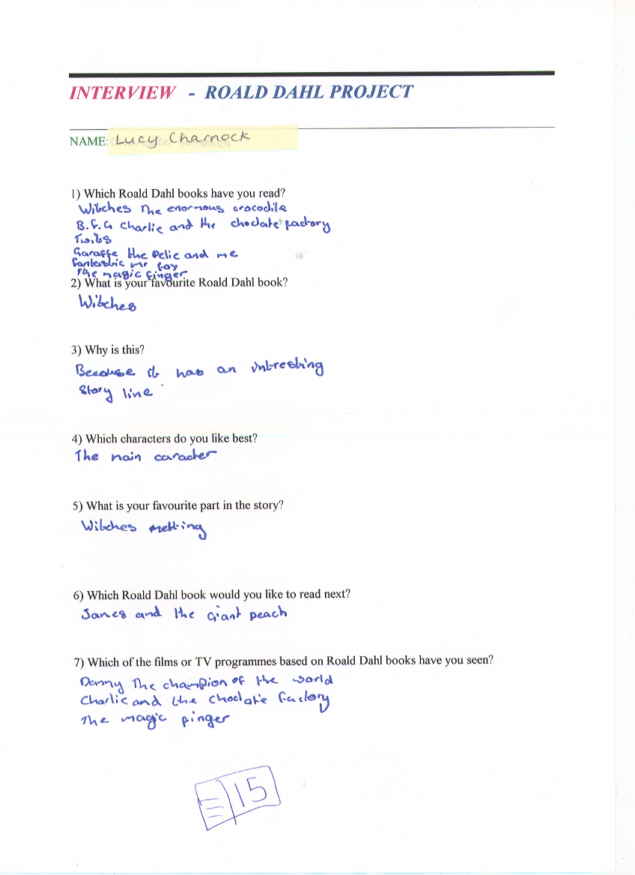 INTERVIEW - ROALD DAHL PROJECT
NAME: Lucy Charnock
1) Which Roald Dahl books have you read?
Witches The enormous crocodile
B.F.G Charlie and the choclate factory
Twits
Garaffe the Pelic and me
fantastic mr fox
The magic finger
2) What is your favourite Roald Dahl book?
Witches
3) Why is this?
Because it has an intresting
Story line
4) Which characters do you like best?
The main caracter
5) What is your favourite part in the story?
Witches melting
6) Which Roald Dahl book would you like to read next?
James and the Giant peach
7) Which of the films or TV programmes based on Roald Dahl books have you seen?
Danny The champion of the world
Charlie and the choclate factory
The magic finger
15